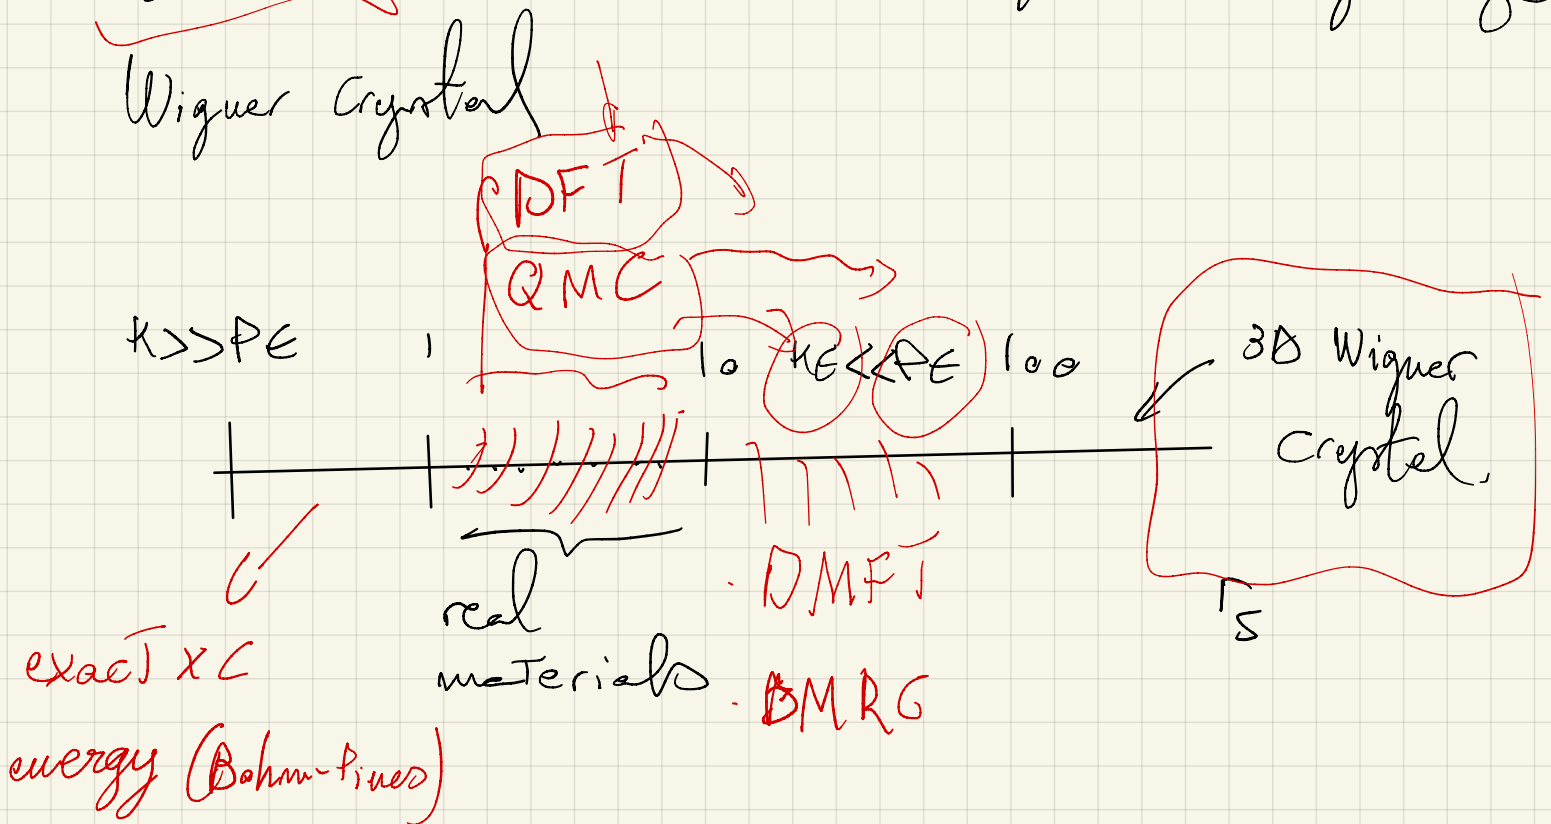 Wigner Crystal
DFT
QMC
K>>PE
1
10
KE<<PE
100
3D Wigner
Crystal.
real
materials
rs
· DMFT
· DMRG
exact XC
energy (Bohm-Pines)